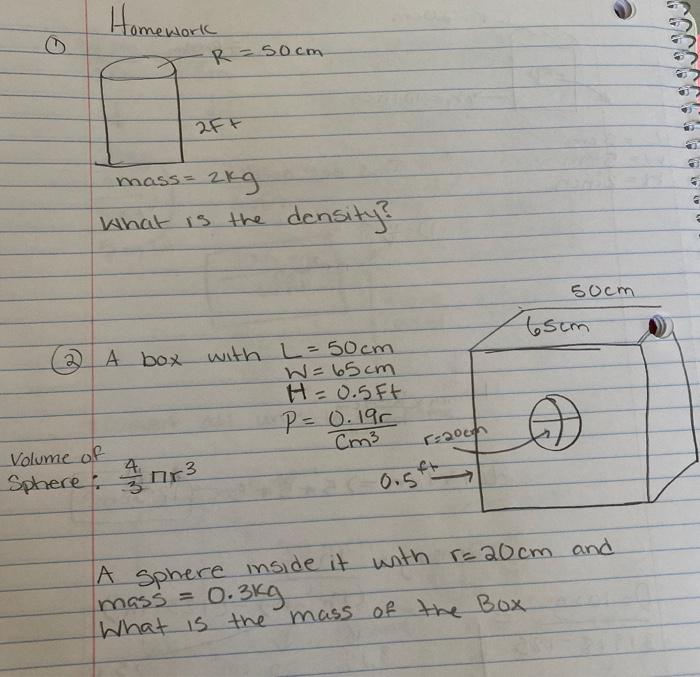 Homework
① R = 50cm
2Ft
mass = 2kg
What is the density?
50cm
65cm
② A box with L = 50cm
W = 65cm
H = 0.5Ft
P = 0.19r
cm³
r=20cm
Volume of
Sphere: 4/3 πr³
0.5 ft →
A sphere inside it with r= 20cm and
mass = 0.3kg
What is the mass of the Box